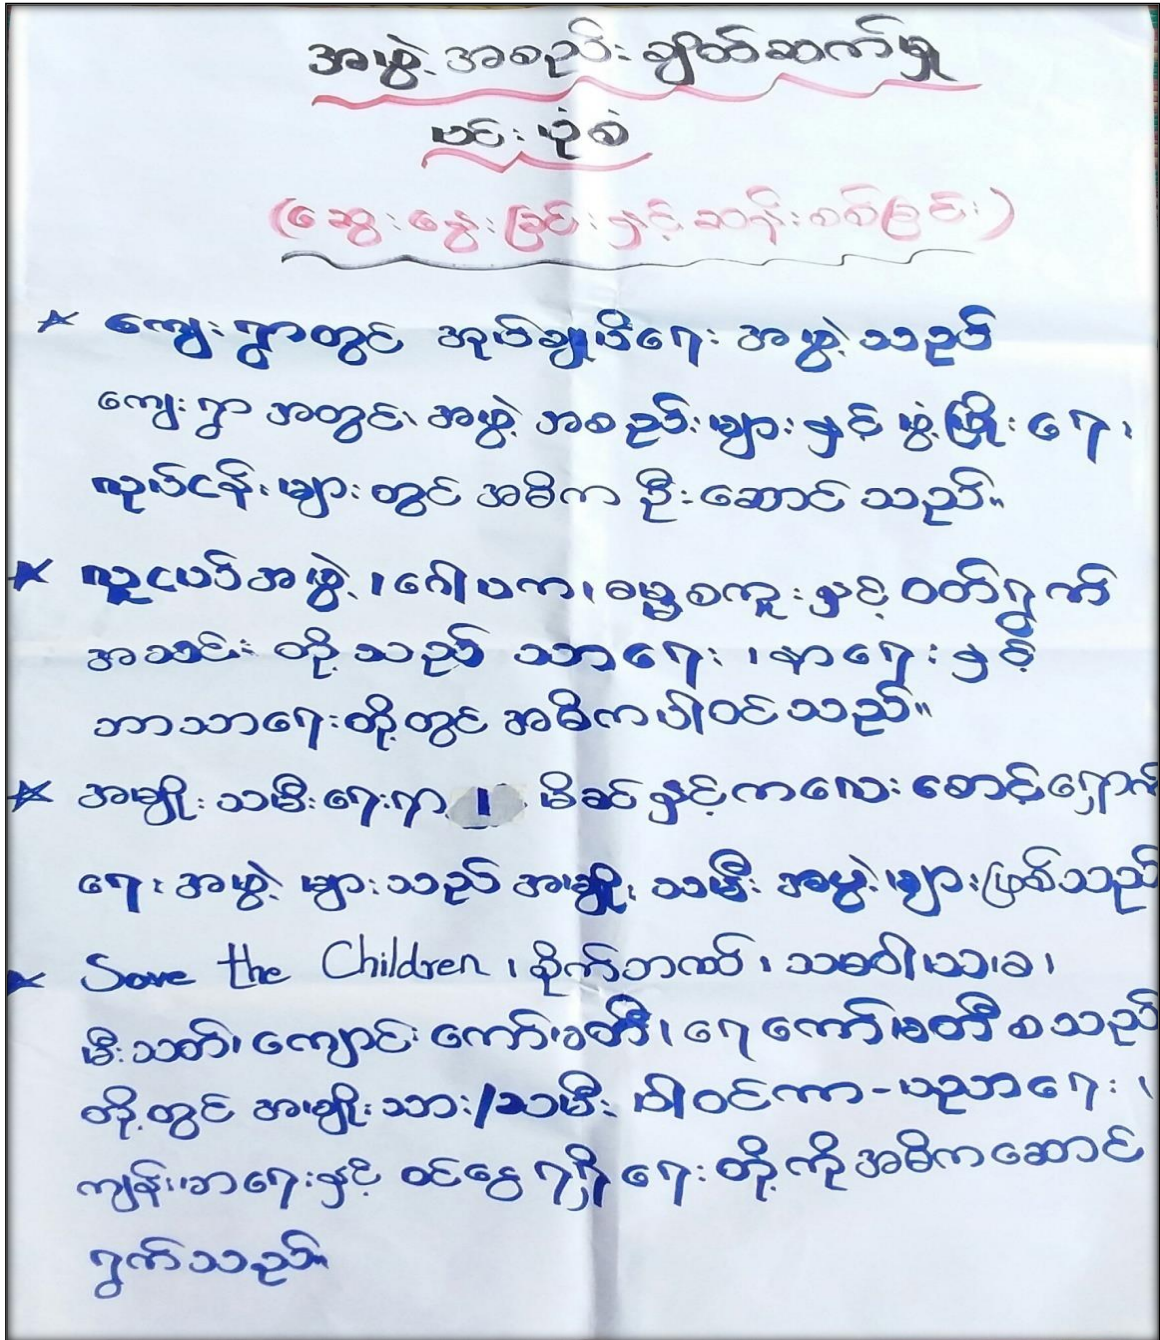 အဖွဲ့အစည်းချိတ်ဆက်မှု
ဗင်းပုံစံ
(ဆွေးနွေးခြင်းနှင့်ဆန်းစစ်ခြင်း)
★ ကျေးရွာတွင် အုပ်ချုပ်ရေးအဖွဲ့သည်
ကျေးရွာအတွင်း၊ အဖွဲ့အစည်းများနှင့် ဖွံ့ဖြိုးရေး၊
လုပ်ငန်းများတွင် အဓိက ဦးဆောင်သည်။
★ လူငယ်အဖွဲ့၊ ဂေါပက၊ ဓမ္မစကူးနှင့် ဝတ်ရွတ်
အသင်းတို့သည် သာရေး၊ နာရေးနှင့်
ဘာသာရေးတို့တွင် အဓိကပါဝင်သည်။
★ အမျိုးသမီးရေးရာ ၊ မိခင်နှင့်ကလေးစောင့်ရှောက်
ရေးအဖွဲ့များသည် အမျိုးသမီး အဖွဲ့များဖြစ်သည်
★ Save the Children ၊ စိုက်ဘဏ် ၊ သမဝါယမ ၊
မီးသတ်၊ ကျောင်းကော်မတီ၊ ရေကော်မတီ စသည်
တို့တွင် အမျိုးသား/သမီး ပါဝင်ကာ-ပညာရေး ၊
ကျန်းမာရေးနှင့် ဝင်ငွေရရှိရေးတို့ကိုအဓိကဆောင်
ရွက်သည်။